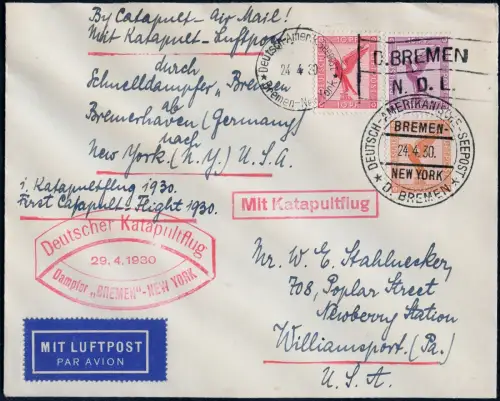 By Catapult-Air Mail!
Mit Katapult-Luftpost
durch
Schnelldampfer "Bremen"
ab
Bremerhaven (Germany)
nach
New York (N.Y.) U.S.A.
1. Katapultflug 1930.
First Catapult-Flight 1930.
Deutsch-Amerikan.
24 4 30
Bremen-New York
D. BREMEN
N. D. L.
DEUTSCH-AMERIKANISCHE-SEEPOST
BREMEN-
24.4.30.
NEW YORK
D. BREMEN
Mit Katapultflug
Deutscher Katapultflug
29.4.1930
Dampfer „BREMEN"-NEW YORK
MIT LUFTPOST
PAR AVION
Mr. W. E. Stahlnecker,
708, Poplar Street
Newberry Station
Williamsport. (Pa.)
U. S. A.